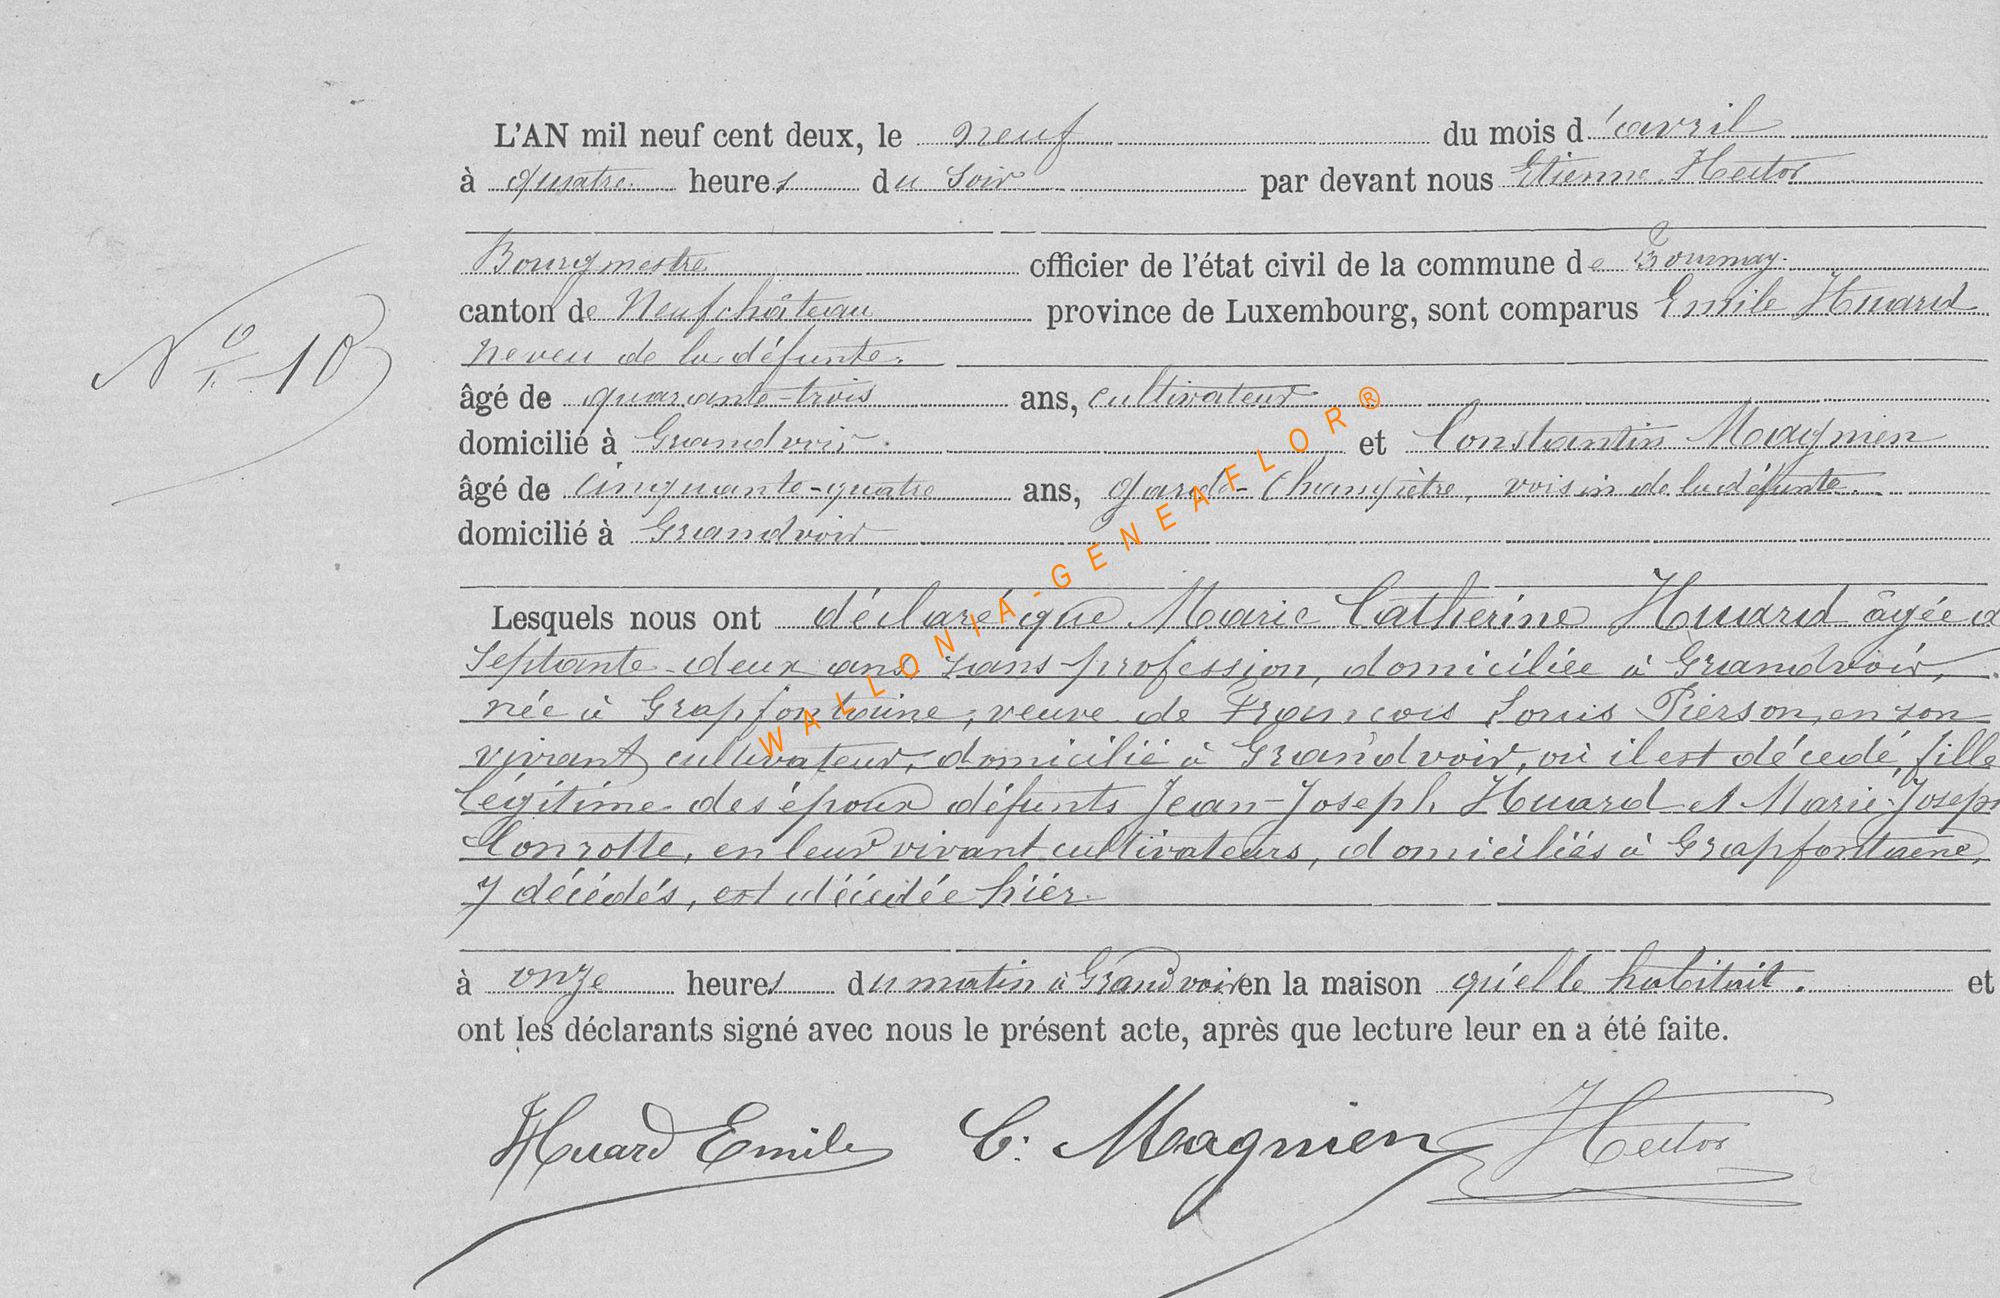 L'AN mil neuf cent deux, le neuf du mois d'avril
à quatre heures du soir par devant nous Etienne Hector
Bourgmestre officier de l'état civil de la commune de Tournay.
canton de Neufchâteau province de Luxembourg, sont comparus Emile Huard
neveu de la défunte.
N° 10
âgé de quarante-trois ans, cultivateur
domicilié à Grandvoir. et Constantin Magnien
âgé de cinquante-quatre ans, garde-champêtre, voisin de la défunte.
domicilié à Grandvoir
Lesquels nous ont déclaré que Marie Catherine Huard âgée d
septante-deux ans, sans profession, domiciliée à Grandvoir,
née à Grapfontaine, veuve de François Louis Pierson, en son
vivant cultivateur, domicilié à Grandvoir, où il est décédé, fille
légitime des époux défunts Jean-Joseph Huard et Marie-Joseph
Conrotte, en leur vivant cultivateurs, domiciliés à Grapfontaine,
y décédés, est décédée hier.
à onze heures du matin à Grandvoir en la maison qu'elle habitait. et
ont les déclarants signé avec nous le présent acte, après que lecture leur en a été faite.
Huard Emile C. Magnien Hector
WALLONIA-GENEAFLOR®